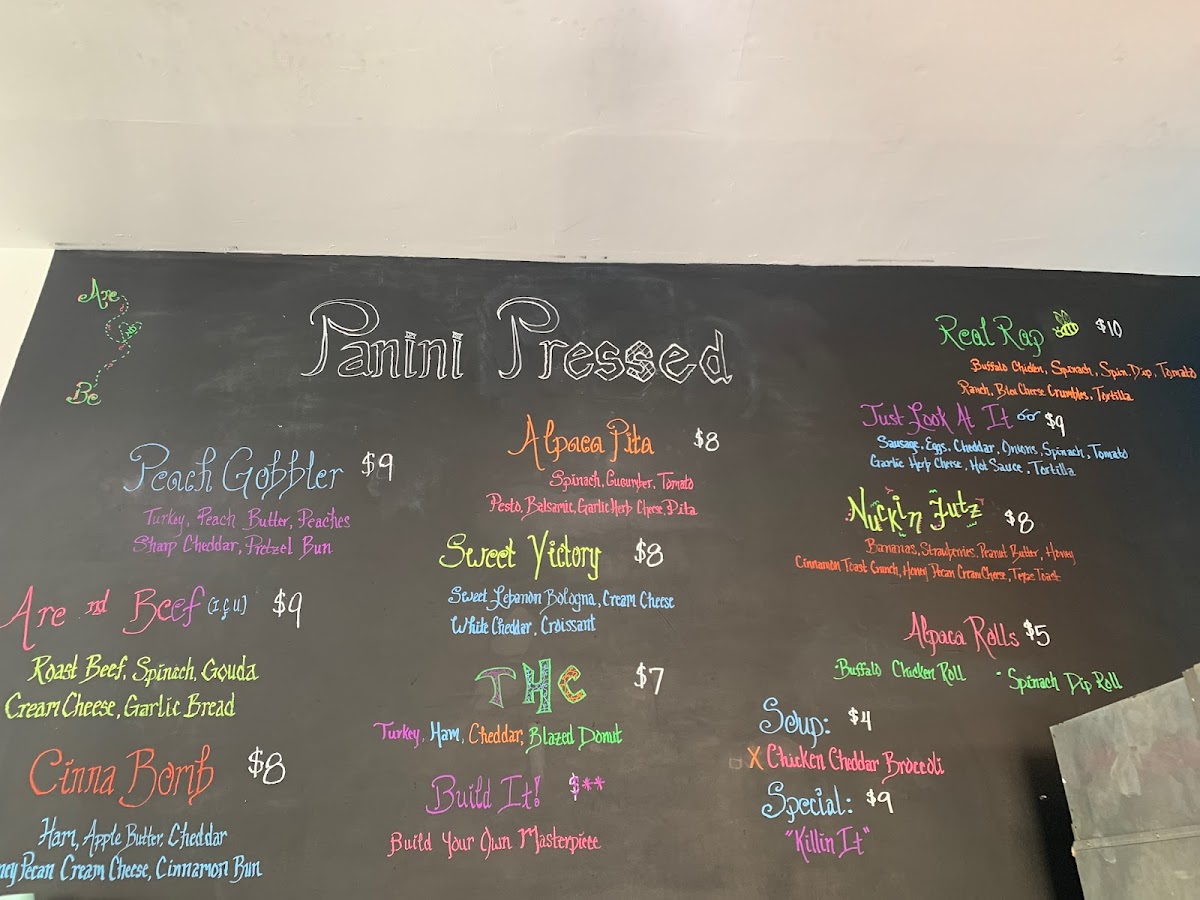 Are
nb
Be
Panini Pressed
Peach Gobbler $9
Turkey, Peach Butter, Peaches
Sharp Cheddar, Pretzel Bun
Are nd Beef $9
Roast Beef, Spinach, Gouda
Cream Cheese, Garlic Bread
Cinna Bomb $8
Ham, Apple Butter, Cheddar
ney Pecan Cream Cheese, Cinnamon Bun
Alpaca Pita $8
Spinach, Cucumber, Tomato
Pesto, Balsamic, Garlic Herb Cheese Pita
Sweet Victory $8
Sweet Lebanon Bologna, Cream Cheese
White Cheddar, Croissant
THC $7
Turkey, Ham, Cheddar, Blazed Donut
Build It! $**
Build Your Own Masterpiece
Real Rap $10
Buffalo Chicken, Spinach, Spin. Dip, Tomato
Ranch, Bleu Cheese Crumbles, Tortilla
Just Look At It $9
Sausage, Eggs, Cheddar, Onions, Spinach, Tomato
Garlic Herb Cheese, Hot Sauce, Tortilla
Nuckin Futz $8
Bananas, Strawberries, Peanut Butter, Honey
Cinnamon Toast Crunch, Honey Pecan Cream Cheese, Texas Toast
Alpaca Rolls $5
·Buffalo Chicken Roll ·Spinach Dip Roll
Soup: $4
X Chicken Cheddar Broccoli
Special: $9
"Killin It"